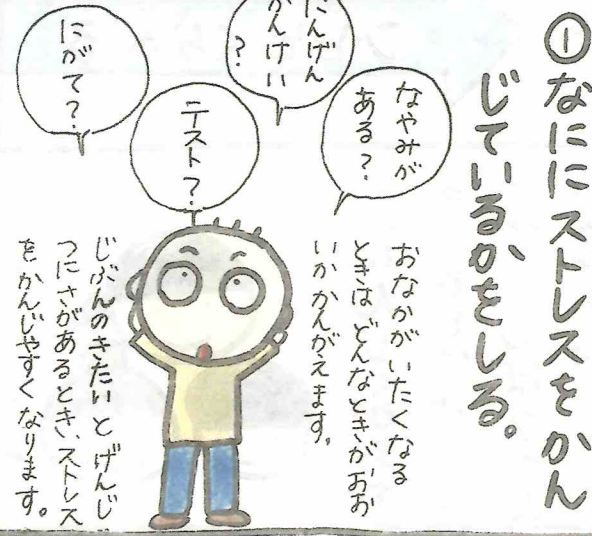 ①なにに ストレスをかん
じているかをしる。
なやみが
ある？
にんげん
かんけい
？
テスト？
にがて？
おなかが いたくなる
ときは どんなときが おお
いか かんがえます。
じぶんの きたいと げんじ
つに さがあるとき、ストレス
を かんじやすく なります。